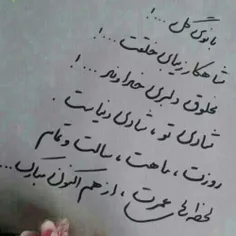 بانوی گل ...!
شاهکار زیبای خلقت ...!
مخلوق دلبری خداوند ...!
شادی تو ، شادی دنیاست .
روزت ، ماهت ، سالت و تمام
لحظه های عمرت ، از هم اکنون مبارک ...